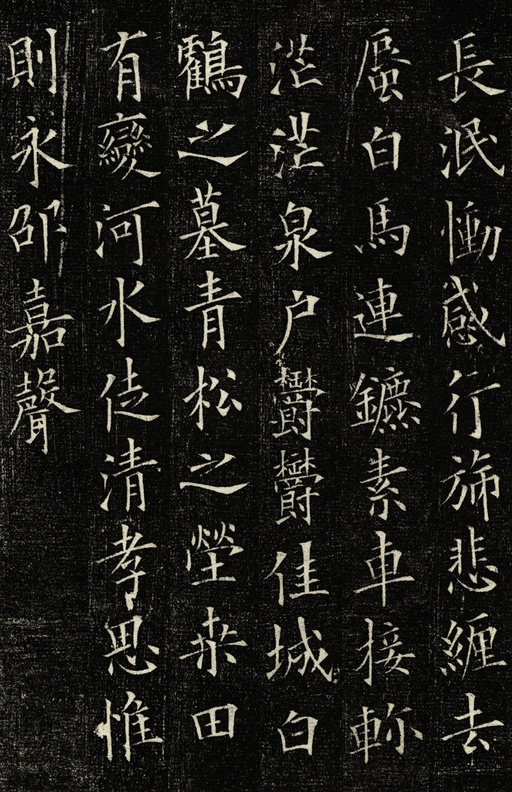 長泯慟感行旆悲纏去
蜃白馬連鑣素車接軫
茫茫泉户鬱鬱佳城白
鸖之墓青松之塋桒田
有變河水徒清孝思惟
則永邵嘉聲